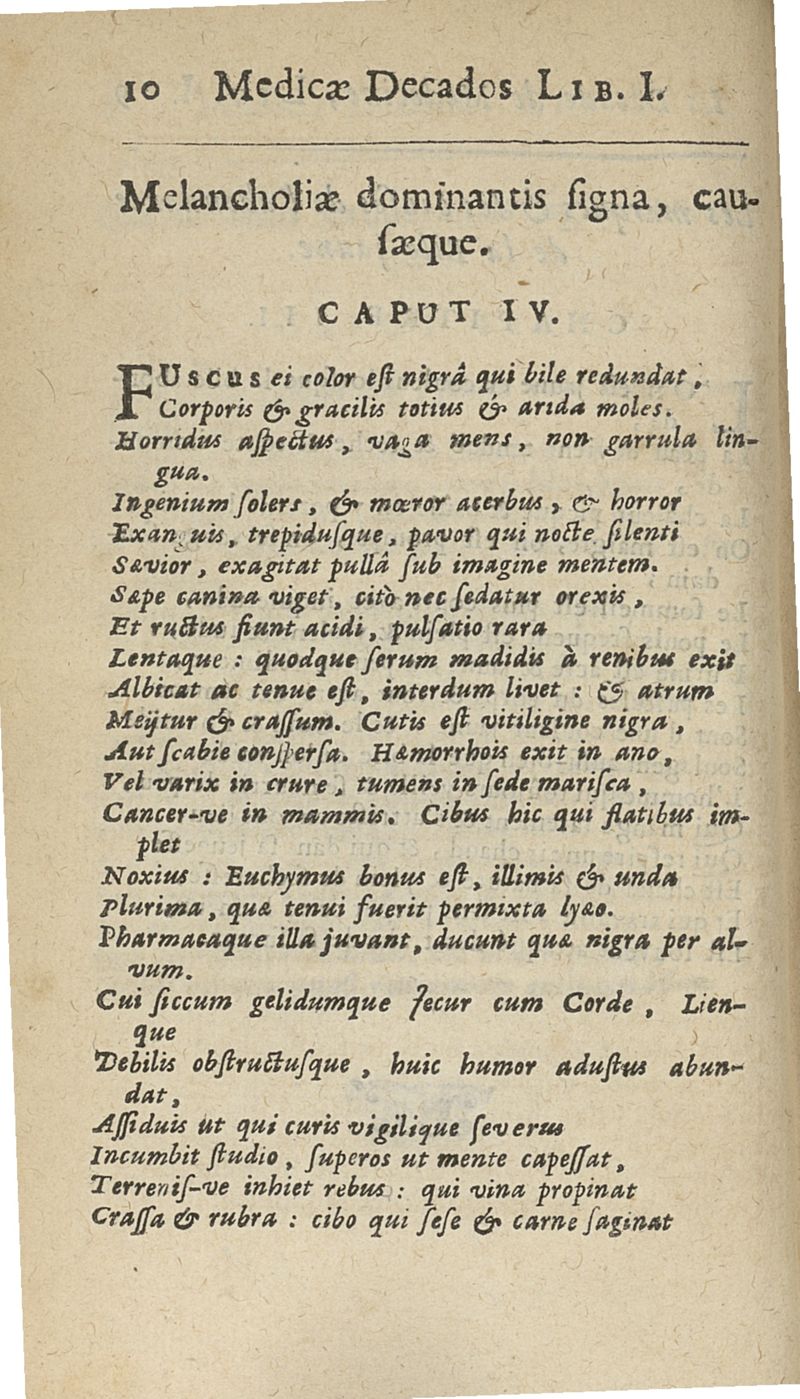 10 Medicæ Decados LIB. I.
Melancholiæ dominantis ſigna, cau-
ſæque.
CAPUT IV.
FUSCUS ei color eſt nigrâ qui bile redundat,
Corporis & gracilis totius & arida moles.
Horridus aſpectus, vaga mens, non garrula lin-
gua.
Ingenium ſolers, & mœror acerbus, & horror
Exanguis, trepiduſque, pavor qui nocte ſilenti
Sævior, exagitat pullâ ſub imagine mentem.
Sæpe canina viget, citò nec ſedatur orexis,
Et ructus fiunt acidi, pulſatio rara
Lentaque: quodque ſerum madidis à renibus exit
Albicat ac tenue eſt, interdum livet: & atrum
Meijtur & craſſum. Cutis eſt vitiligine nigra,
Aut ſcabie conſperſa. Hæmorrhois exit in ano,
Vel varix in crure, tumens in ſede mariſca,
Cancer-ve in mammis. Cibus hic qui flatibus im-
plet
Noxius: Euchymus bonus eſt, illimis & unda
Plurima, quæ tenui fuerit permixta lyæo.
Pharmacaque illa juvant, ducunt quæ nigra per al-
vum.
Cui ſiccum gelidumque Jecur cum Corde, Lien-
que
Debilis obſtructuſque, huic humor aduſtus abun-
dat,
Aſſiduis ut qui curis vigilique ſeverus
Incumbit ſtudio, ſuperos ut mente capeſſat,
Terreniſ-ve inhiet rebus: qui vina propinat
Craſſa & rubra: cibo qui ſeſe & carne ſaginat